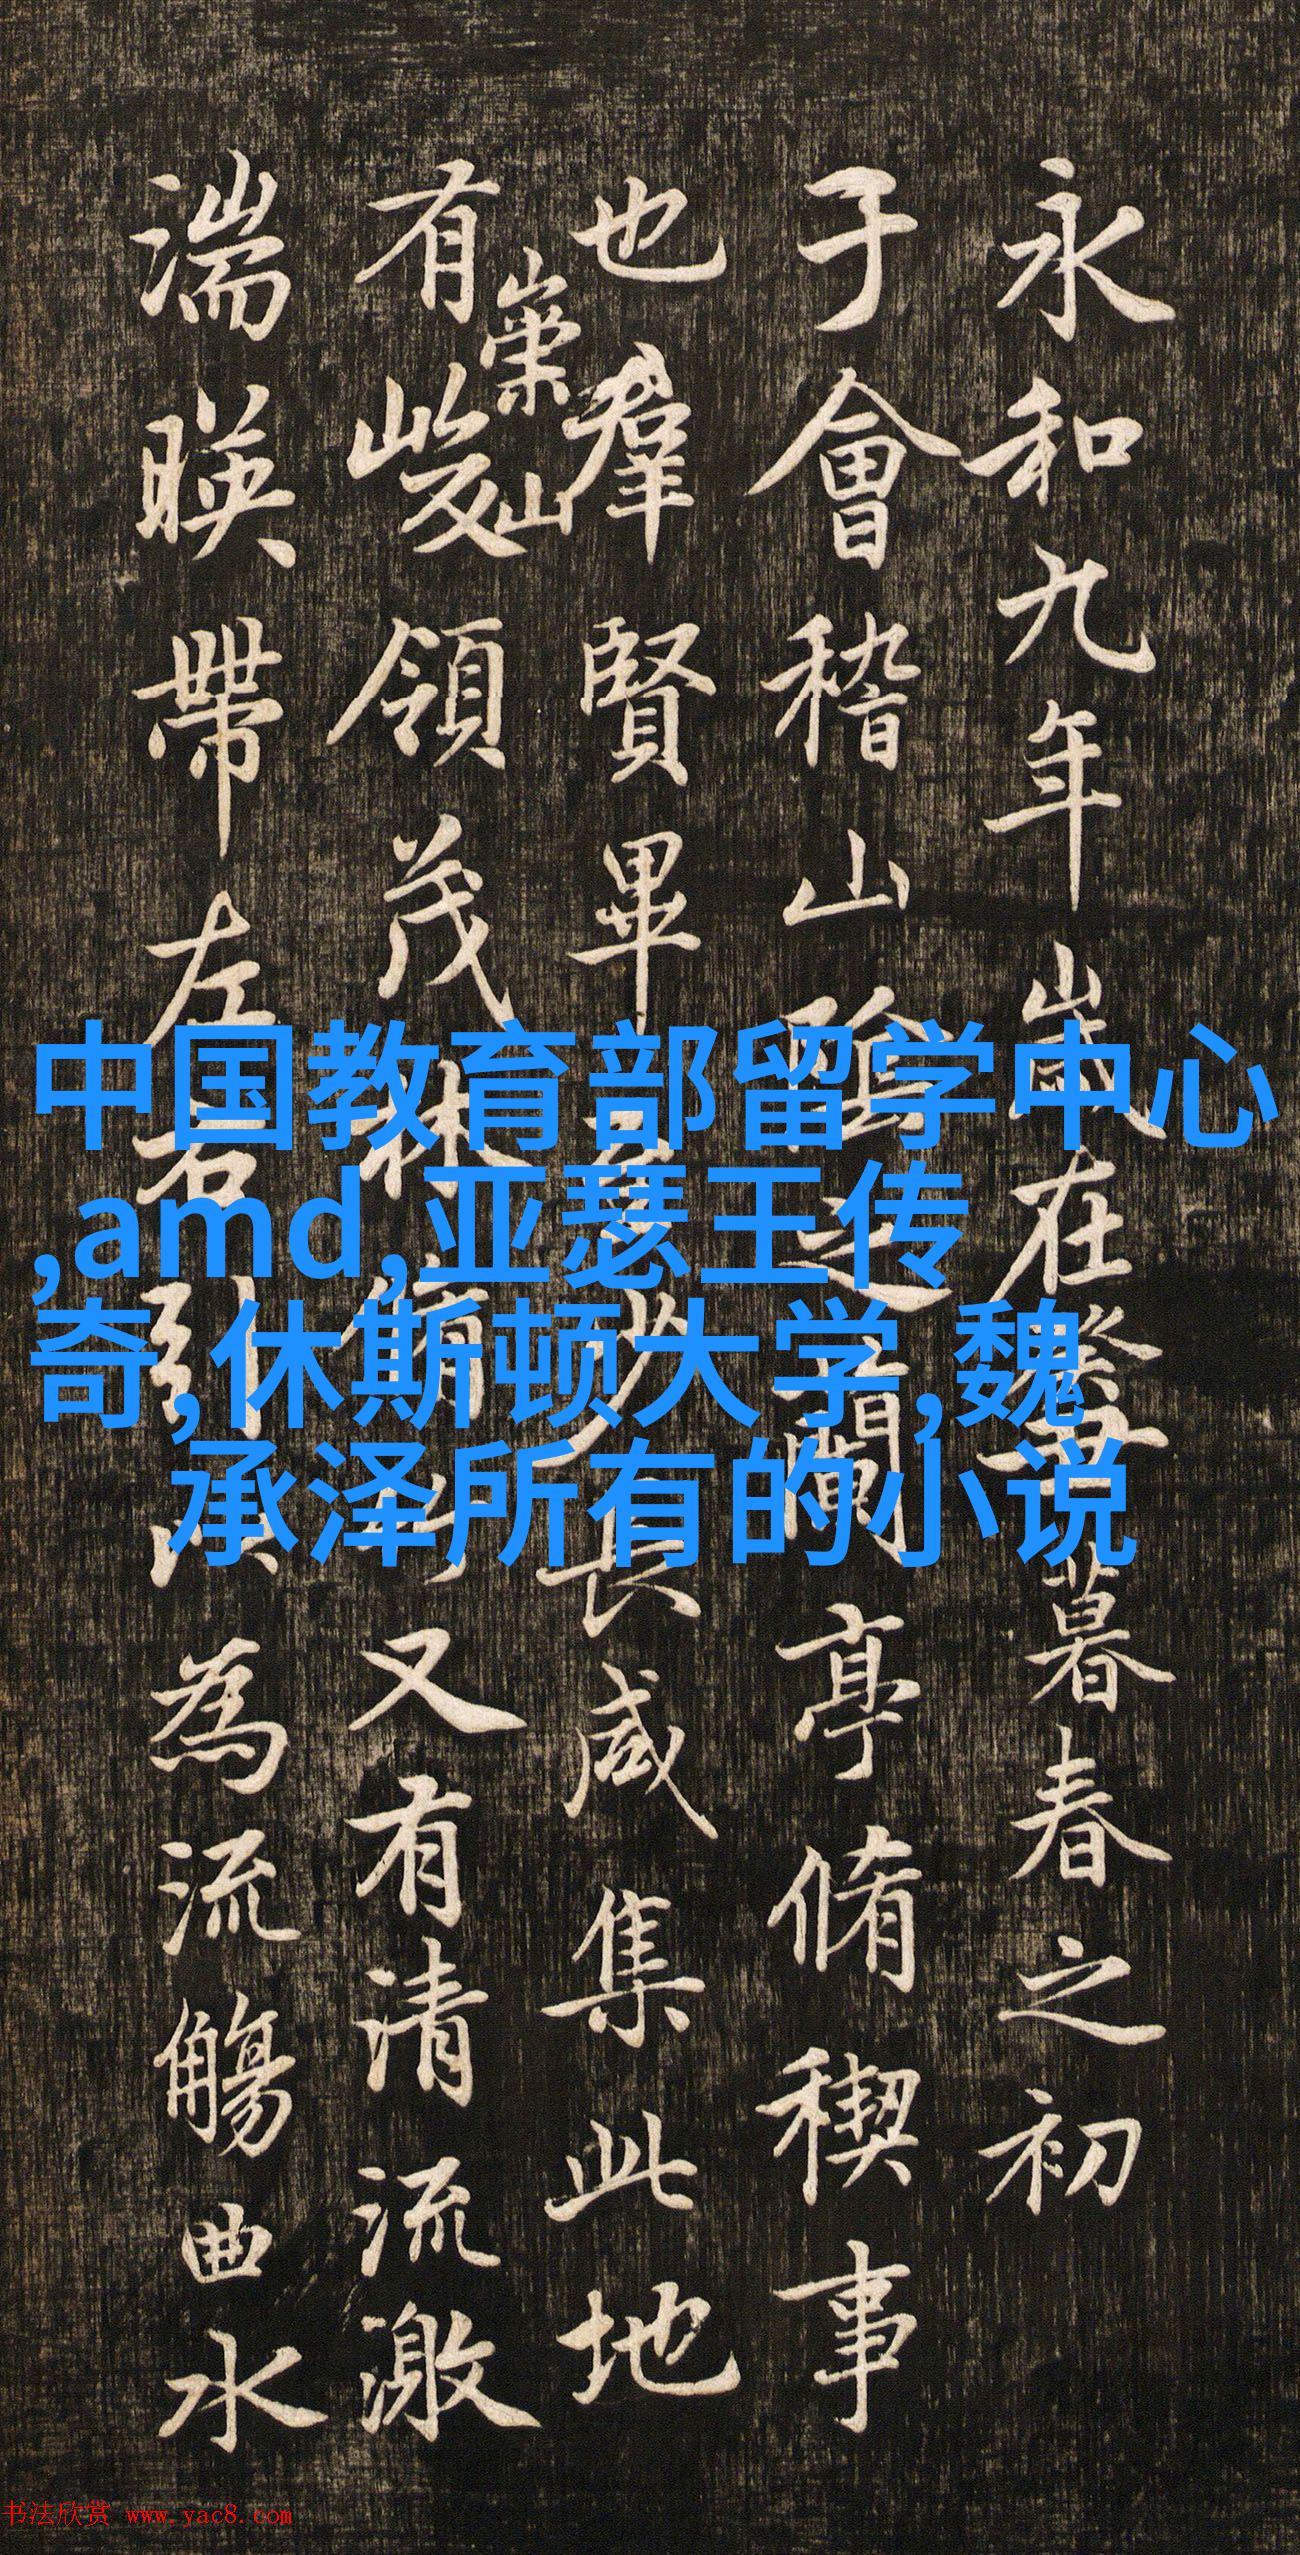 永和九年歲在癸丑暮春之初
于會稽山陰之蘭亭脩稧事
也羣賢畢至少長咸集此地
有崇山峻領茂林脩竹又有清流激
湍暎帶左右引以為流觴曲水
中国教育部留学中心
,amd,亚瑟王传
奇,休斯顿大学,魏
承泽所有的小说
书法欣赏 www.yac8.com